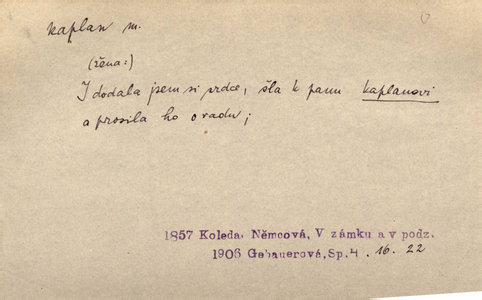 kaplan m.
(žena:)
I dodala jsem si srdce, šla k panu kaplanovi
a prosila ho o radu;
1857 Koleda. Němcová, V zámku a v podz.
1906 Gebauerová, Sp. 4. 16. 22